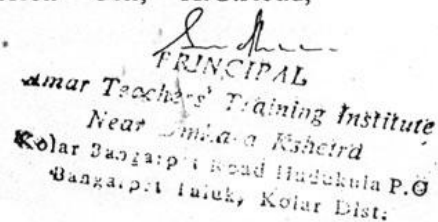 PRINCIPAL
Amar Teachers' Training Institute
Near Kshetra
Kolar Bangarpet Road Hudukula P.O
Bangarpet Taluk, Kolar Dist: